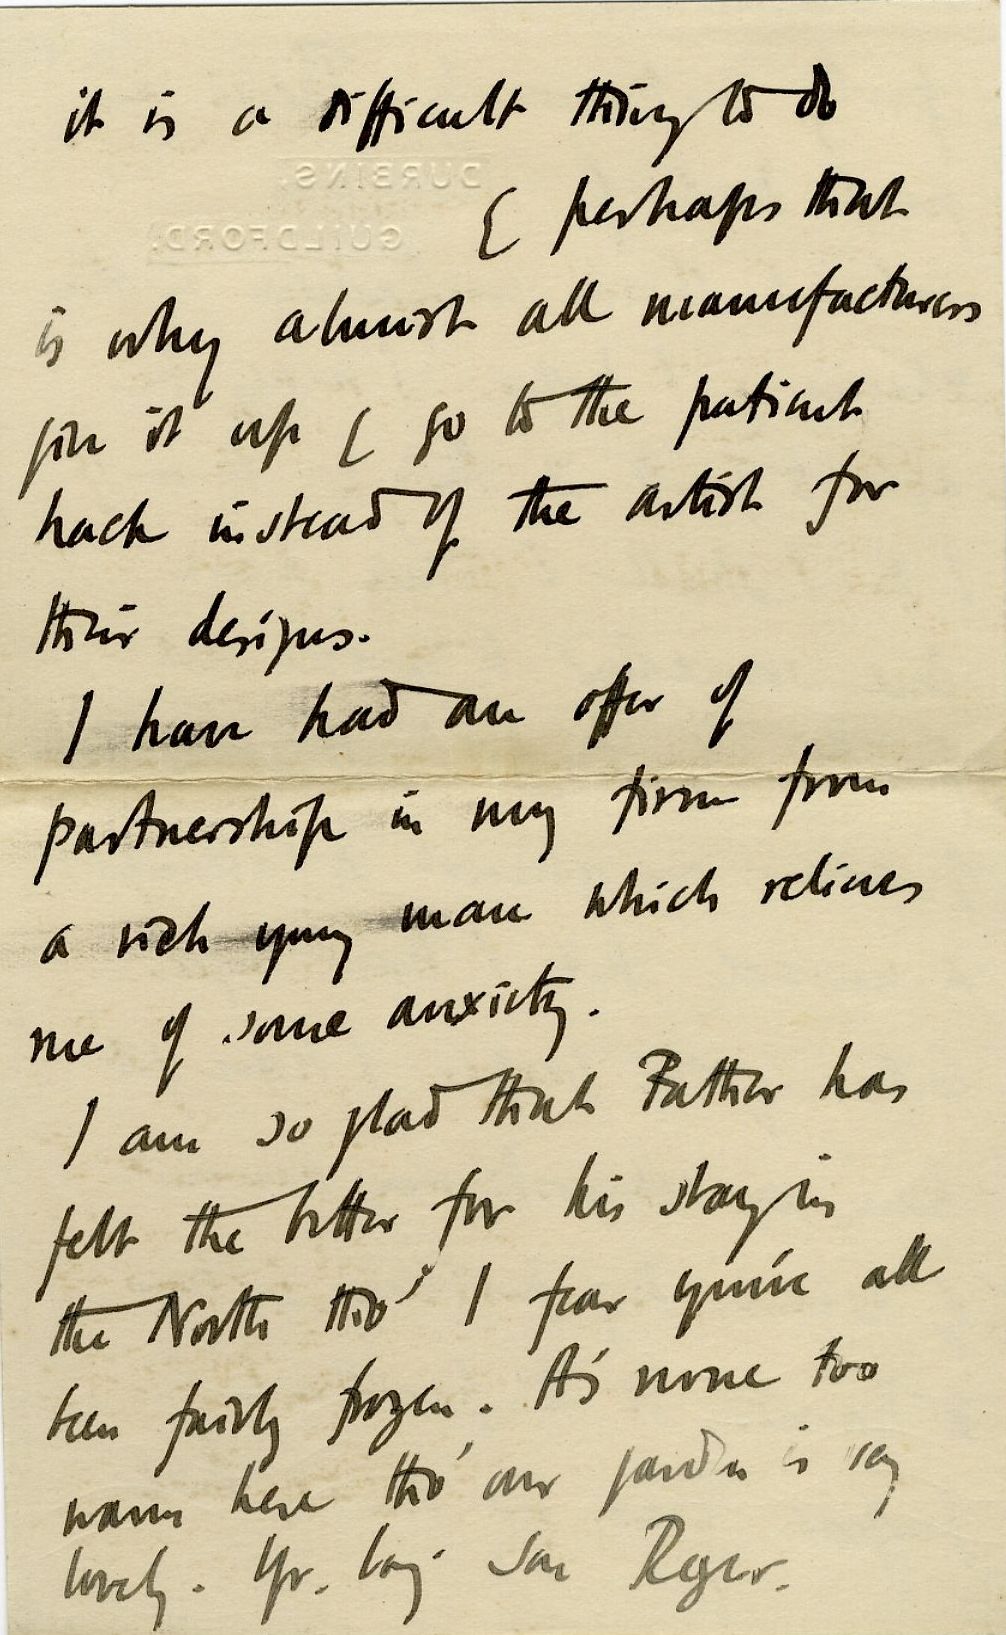 it is a difficult thing to do
DURBINS,
& perhaps that
GUILDFORD.
is why almost all manufacturers
give it up & go to the patient
hack instead of the artist for
their designs.
I have had an offer of
partnership in my firm from
a rich young man which relieves
me of some anxiety.
I am so glad that Father has
felt the better for his stay in
the North tho' I fear you've all
been fairly frozen. It's none too
warm here tho' our garden is very
lovely. Yr. lovg son Roger.